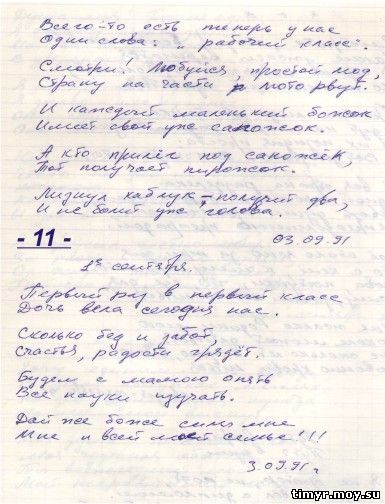 Всего-то есть теперь у нас
Одни слова: „рабочий класс".
Смотри! Любуйся, простой люд,
Страну на части р люто рвут.
И каждый маленький божок
Имеет свой уже сапожок.
А кто прилёг под сапожёк,
Тот получает пирожок.
Лизнул каблук – получит два,
И не болит уже голова.
- 11 -
03.09.91
1е сентября.
Первый раз в первый класс
Дочь вела сегодня нас.
Сколько бед и забот,
Счастья, радости грядёт.
Будем с мамою опять
Все науки изучать.
Дай же боже силы мне
Мне и всей моей семье!!!
3.09.91 г
timyr.moy.su